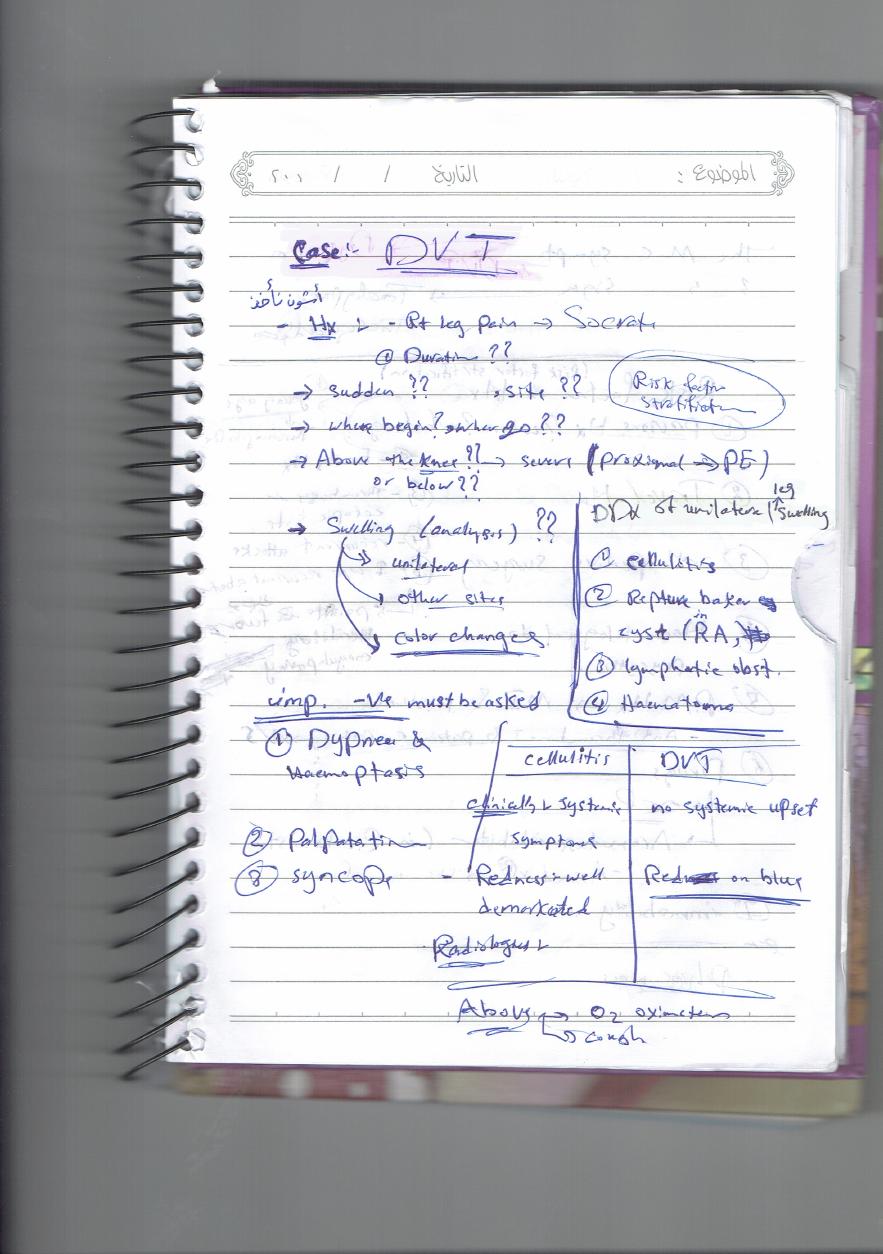 الموضوع : التاريخ / / ٢٠١
Case :- DVT
أشون نأخذ
- Hx :- - Rt leg pain → Socrate
@ Duration ??
→ sudden ?? , site ??
Risk factor
stratification
→ where begin? , where go ??
→ Above the knee ?? → severe (proximal → PE)
or below ??
→ Swelling (analysis) ??
→ unilateral
→ other sites
→ color changes
DDx of unilateral leg swelling
① cellulitis
② Repture baker
cyst (in RA,
③ lymphatic obst.
④ Haematoma
imp. -Ve must be asked
① Dypnea &
Haemoptasis
② Palpatation
③ syncope
cellulitis DVT
clinically :- systemic no systemic upset
symptoms
- Redness :- well Red on blue
demarkated
Radiologies :-
Above → O2 oximeter
→ cough